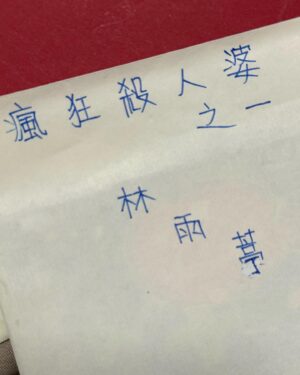 瘋狂殺人婆
之一
林雨葶